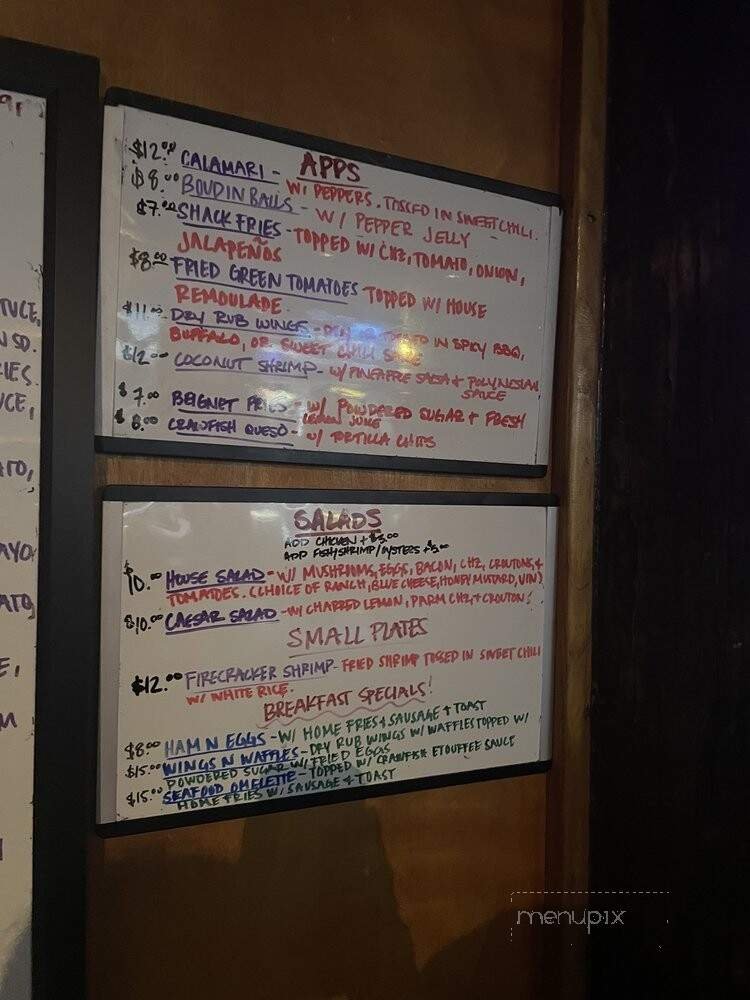 TUCE,
NSD.
IES.
UCE,
ATO,
AYO
ATO,
E,
M
APPS
$12.00 CALAMARI - W/ PEPPERS. TOSSED IN SWEET CHILI.
$8.00 BOUDIN BALLS - W/ PEPPER JELLY
$7.00 SHACK FRIES - TOPPED W/ CHZ, TOMATO, ONION,
JALAPEÑOS
$8.00 FRIED GREEN TOMATOES TOPPED W/ HOUSE
REMOULADE
$11.00 DRY RUB WINGS - DRY OR TOSSED IN SPICY BBQ,
BUFFALO, OR SWEET CHILI SAUCE
$12.00 COCONUT SHRIMP - W/ PINEAPPLE SALSA + POLYNESIAN
SAUCE
$7.00 BEIGNET FRIES - W/ POWDERED SUGAR + FRESH
LEMON JUICE
$8.00 CRAWFISH QUESO - W/ TORTILLA CHIPS
SALADS
ADD CHICKEN +$3.00
ADD FISH/SHRIMP/OYSTERS +$5.00
$10.00 HOUSE SALAD - W/ MUSHROOMS, EGGS, BACON, CHZ, CROUTONS, +
TOMATOES. (CHOICE OF RANCH, BLUE CHEESE, HONEY MUSTARD, VIN)
$10.00 CAESAR SALAD - W/ CHARRED LEMON, PARM CHZ, + CROUTONS
SMALL PLATES
$12.00 FIRECRACKER SHRIMP - FRIED SHRIMP TOSSED IN SWEET CHILI
W/ WHITE RICE.
BREAKFAST SPECIALS!
$8.00 HAM N EGGS - W/ HOME FRIES + SAUSAGE + TOAST
$15.00 WINGS N WAFFLES - DRY RUB WINGS W/ WAFFLES TOPPED W/
POWDERED SUGAR W/ FRIED EGGS
$15.00 SEAFOOD OMELETTE - TOPPED W/ CRAWFISH ETOUFFEE SAUCE
HOME FRIES W/ SAUSAGE + TOAST
menupix